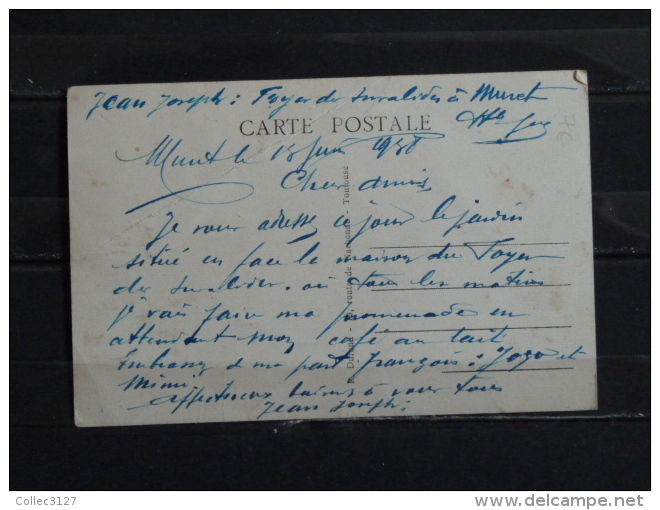 Jean Joseph : Foyer des Invalides à Muret
Hte Gne
CARTE POSTALE
Muret le 15 Juin 1938
Chers amis,
Je vous adresse ce jour le jardin
situé en face la maison du Foyer
des Invalides. où tous les matins
je vais faire ma promenade en
attendant mon café au lait
Embrassez de ma part François : Jojo et
Mimi.
Affectueux baisers à vous tous
Jean Joseph.
Toulouse
Collec3127
delcampe.net